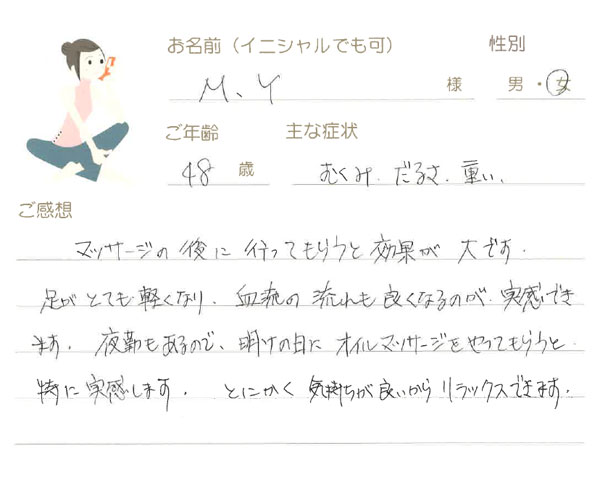 お名前（イニシャルでも可） 性別
M、Y 様 男・女
ご年齢 主な症状
48 歳 むくみ．だるさ．重い、
ご感想
マッサージの後に行ってもらうと効果が大です．
足がとても軽くなり．血流の流れも良くなるのが．実感でき
ます．夜勤もあるので、明けの日にオイルマッサージをやってもらうと．
特に実感します．とにかく気持ちが良いからリラックスできます．